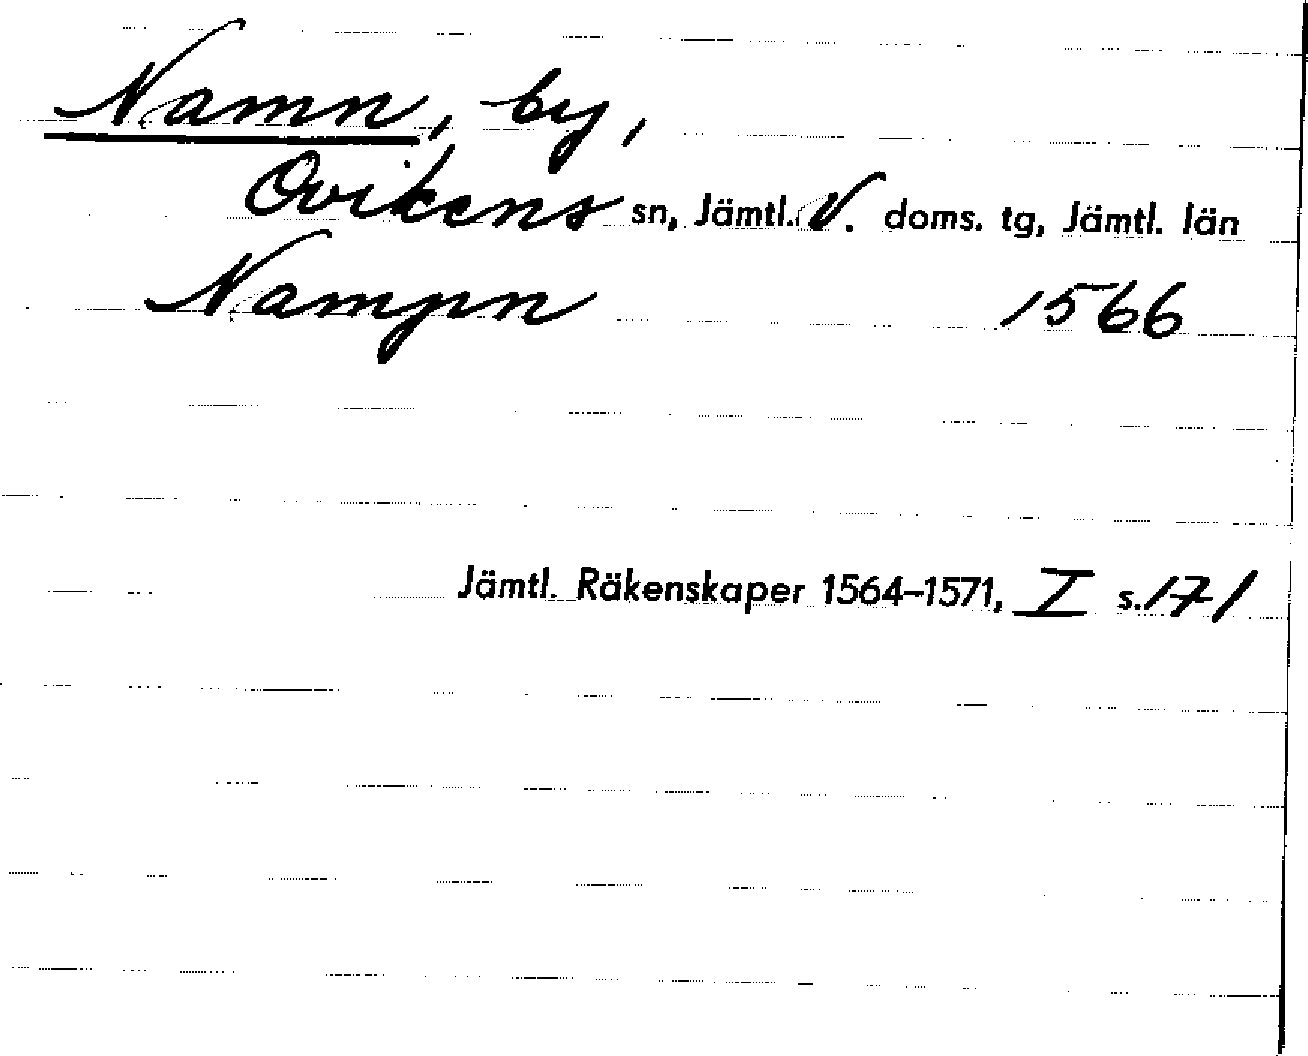 Namn, by,
Ovikens sn, Jämtl. V. doms. tg, Jämtl. län
Nampn 1566
Jämtl. Räkenskaper 1564–1571, I s. 171